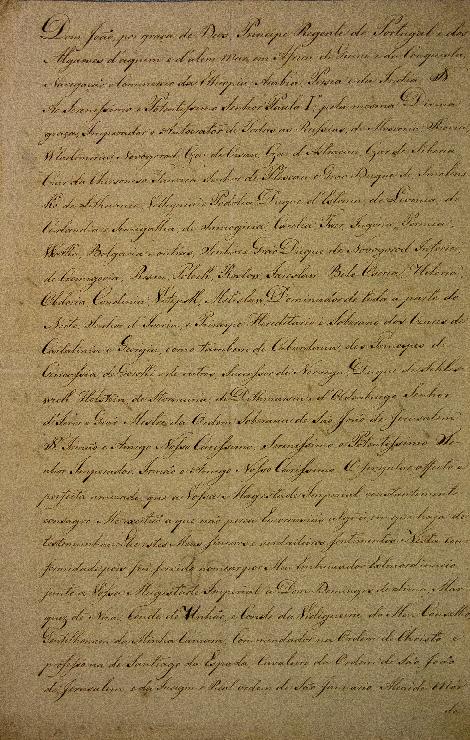 Dom João, por graça de Deos, Principe Regente de Portugal e dos
Algarves d'aquem e d'alem Mar, em Africa de Guiné e da Conquista,
Navegação e Commercio da Ethiopia, Arabia, Persia e da India &
Ao Serenissimo e Potentissimo Senhor Paulo I.º pela mesma Divina
graça, Imperador e Autocrator de Todas as Russias, de Moscovia, Kiovia,
Wladimiria, Novogorod, Czar de Casan, Czar d'Astracan, Czar de Siberia
Czar da Chersoneso Taurica, Senhor de Plescau e Grão Duque de Smolens-
ko, de Lithuania, Volhynia e Podolia, Duque d'Estonia, de Livonia, de
Curlandia e Semigallia, de Samogicia, Carelia, Twer, Jugoria, Permia,
Viatka, Bulgaria e outras, Senhor e Grão Duque de Novogorod Inferior
de Czernigovia, Resan, Polock, Rostov, Jaroslau, Belo Oseria, Udoria,
Obdoria, Condinia, Vitepsk, Mstislau, Dominador de toda a parte do
Norte, Senhor d'Iveria, e Principe Hereditario e Soberano dos Czares de
Cartalinia e Georgia, como tambem de Cabardinia, dos Principes de
Circassia, de Gorski e de outros, Successor de Noruega, Duque de Schles-
wick Holstein, de Stormaria, de Dithmarsia, e d'Oldenburgo, Senhor
de Jever e Grão Mestre da Ordem Soberana de São João de Jerusalem
& Irmão e Amigo Nosso Carissimo, Serenissimo e Potentissimo Se-
nhor Imperador, Irmão e Amigo Nosso Carissimo. O singular affecto e
perfeita amizade, que a Vossa Magestade Imperial constantemente
consagro Me excitão a que não perca
testemunhar-lhe estes Meus sinceros e verdadeiros sentimentos. Nesta con-
formidade pois fui servido nomear por Meu Embaixador Extraordinario
junto a Vossa Magestade Imperial a Dom Domingos de Lima Mar-
quez de Niza, Conde de Unhão, e Conde da Vidigueira, do Meu Conselho,
Gentilhomem da Minha Camara, Commendador na Ordem de Christo, e
professo na de Santiago da Espada, Cavaleiro da Ordem de São João
de Jerusalem, e da Insigne e Real ordem de São Januario, Almirante Mór
da